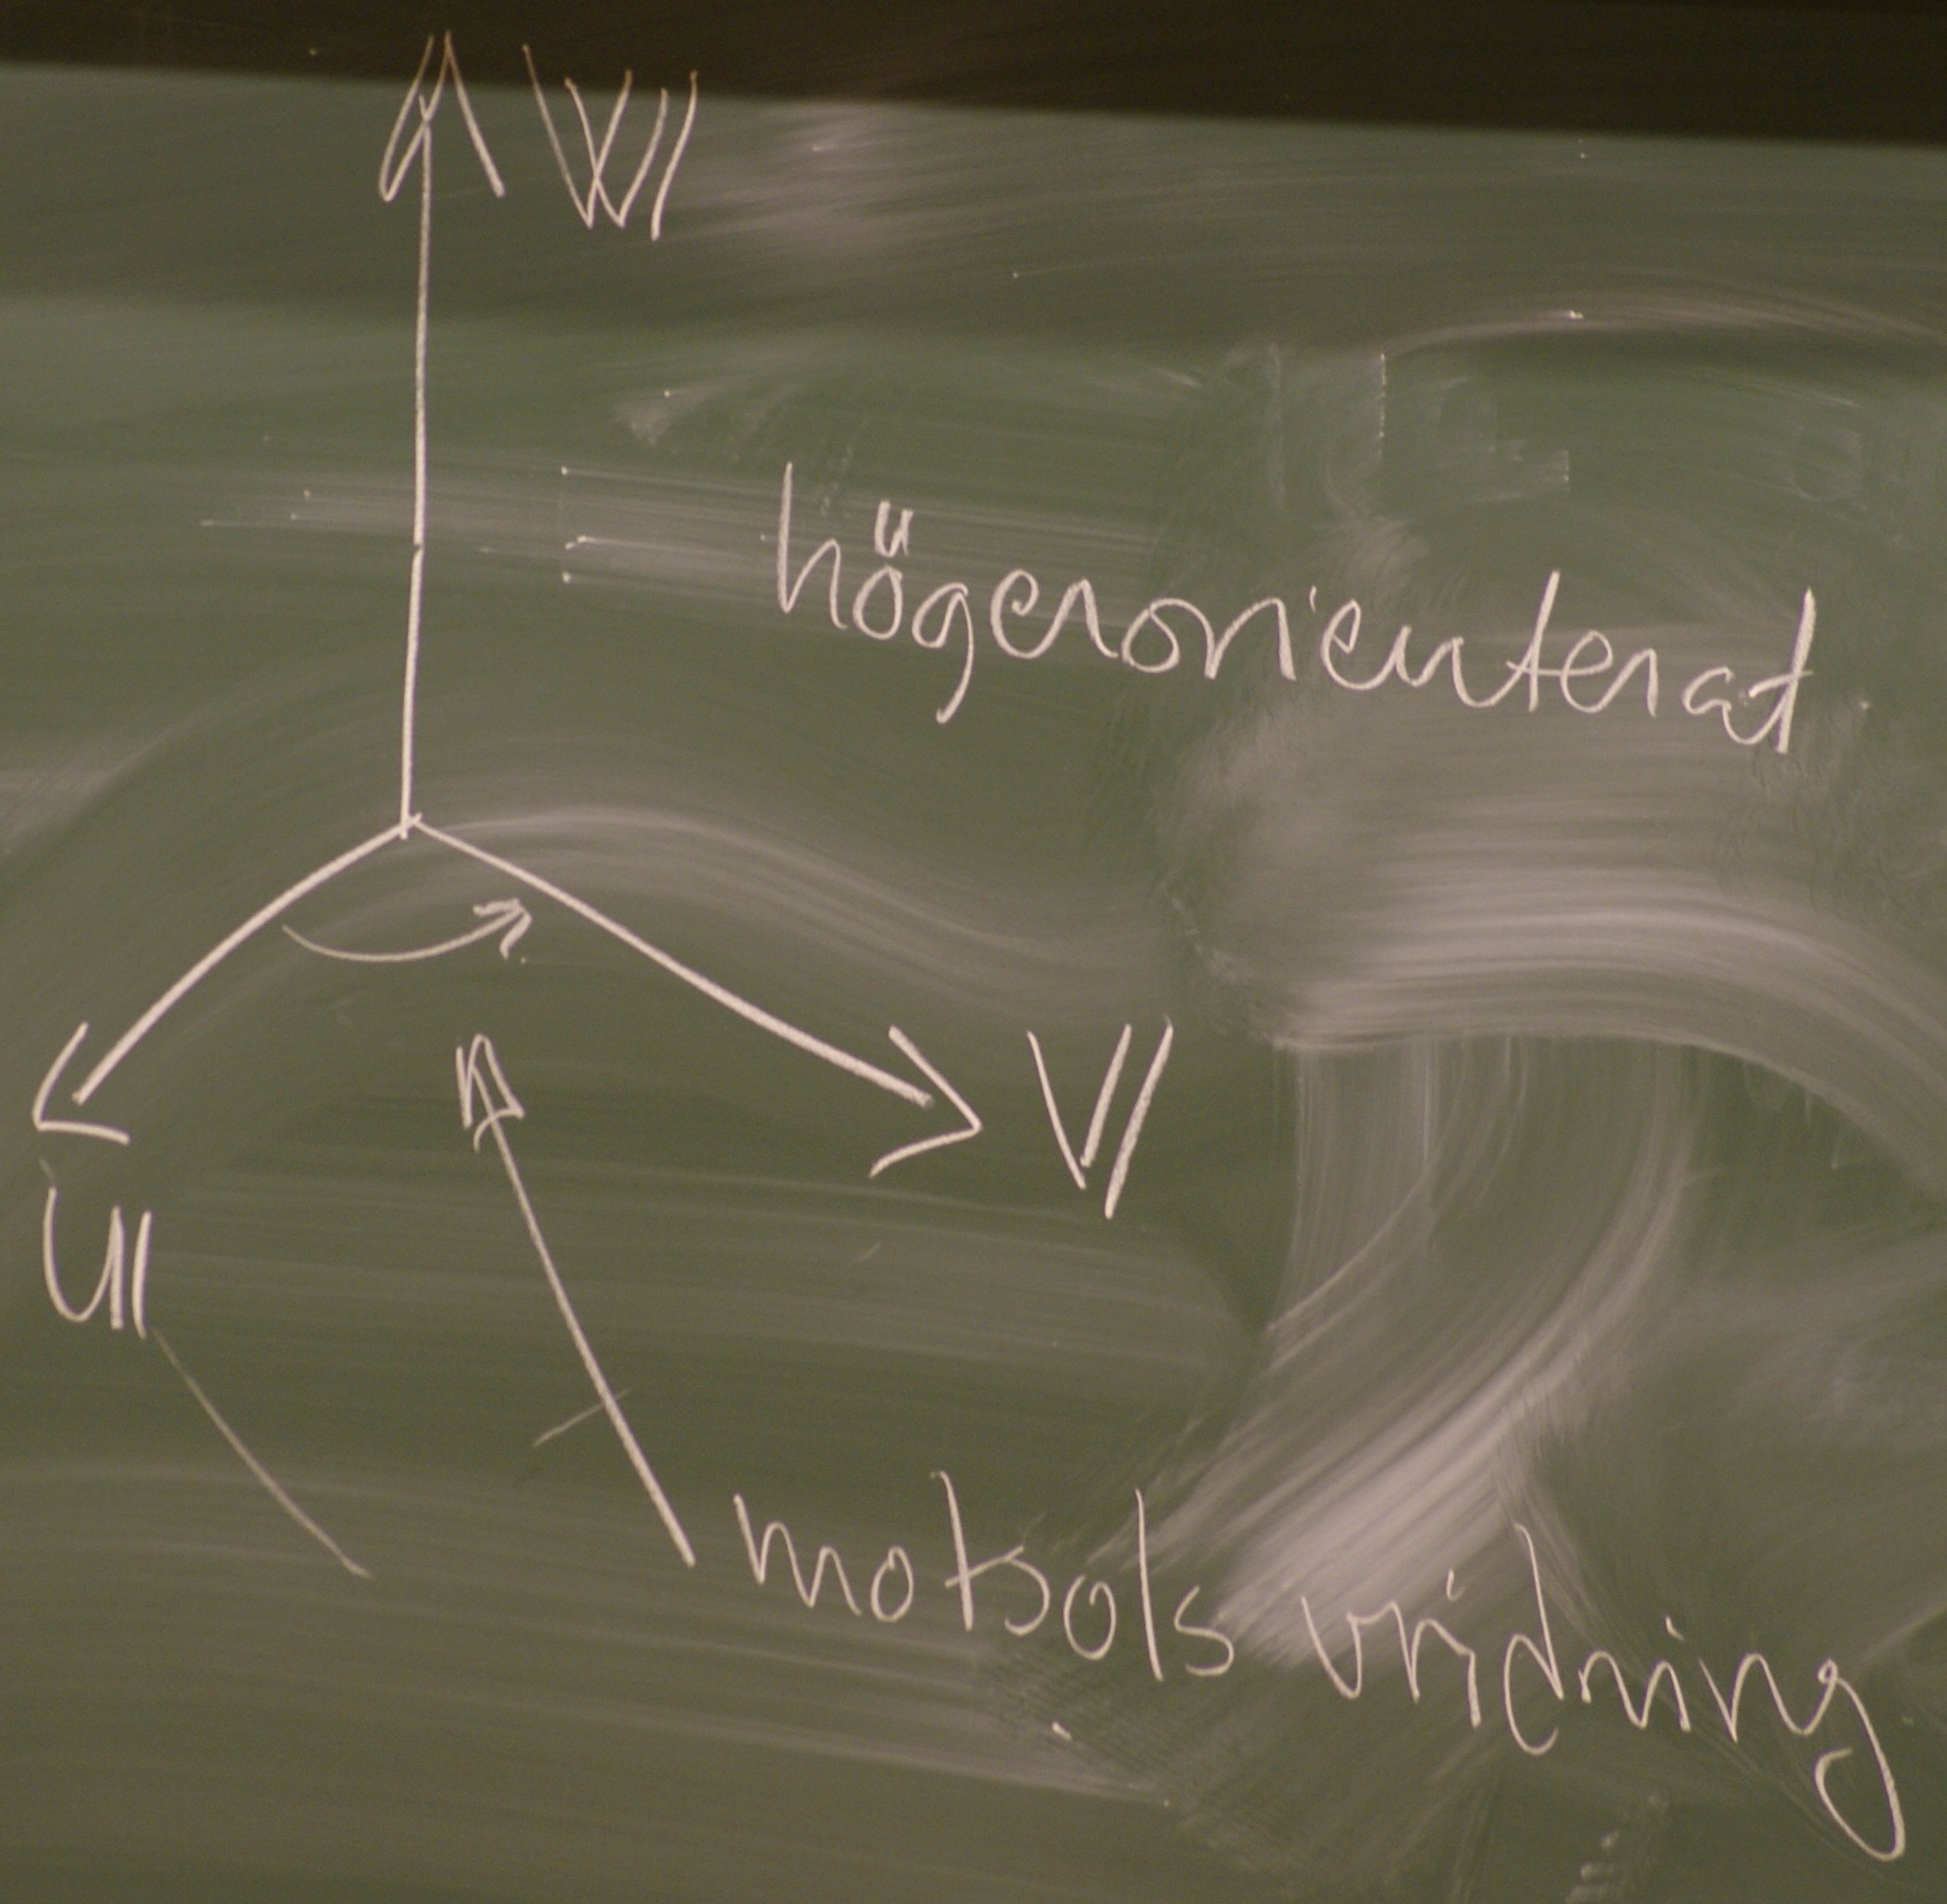 W
högerorienterat
V
u
motsols vridning